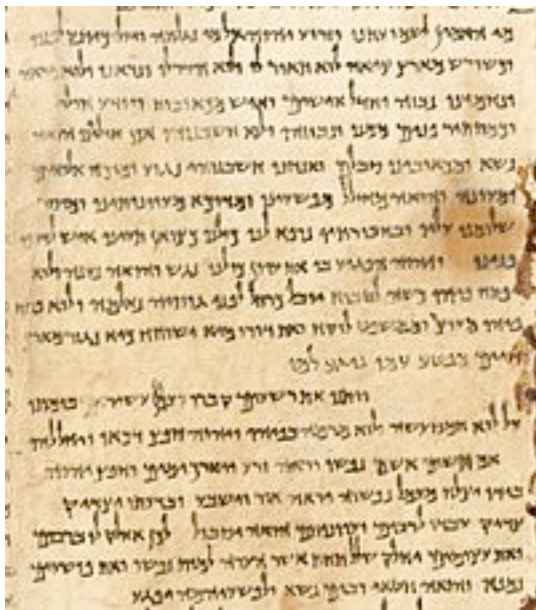 מי האמין לשמועתנו וזרוע יהוה אל מי נגלתה ויעל כיונק לפניו
וכשורש מארץ ציה לוא תואר לו ולוא הדר לו ונראנו ולוא מראה
ונחמדנו נבזה וחדל אישים ואיש מכאובות ויודע חולי
וכמסתיר פנים ממנו ונבוזהו ולוא חשבנוהו אכן חוליינו הואה
נשא ומכאובינו סבלם ואנחנו חשבנוהו נגוע ומוכה אלוהים
ומעונה והואה מחולל מפשעינו ומדוכא מעוונותינו ומוסר
שלומנו עליו ובחבורתיו נרפא לנו כולנו כצואן תעינו איש לדרכו
פנינו ויהוה הפגיע בו את עוון כולנו נגש והואה נענה ולוא
יפתח פיהו כשה לטבוח יובל כרחל לפני גוזזיה נאלמה ולוא פתח
פיהו מעוצר וממשפט לוקח ואת דורו מיא ישוחח כיא נגזר מארץ
חיים מפשע עמו נוגע למו
ויתנו את רשעים קברו ועם עשיר בומתו
על לוא חמס עשה ולוא מרמה בפיהו ויהוה חפץ דכאו ויחללהו
אם תשים אשם נפשו ויראה זרע ויאריך ימים וחפץ יהוה
בידו יצלח מעמל נפשוה יראה אור וישבע ובדעתו יצדיק
צדיק עבדו לרבים ועוונותם הואה יסבול לכן אחלק לו ברבים
ואת עצומים יחלק שלל תחת אשר הערה למות נפשו ואת פושעים
נמנה והואה חטאי רבים נשא ולפשעיהמה יפגע